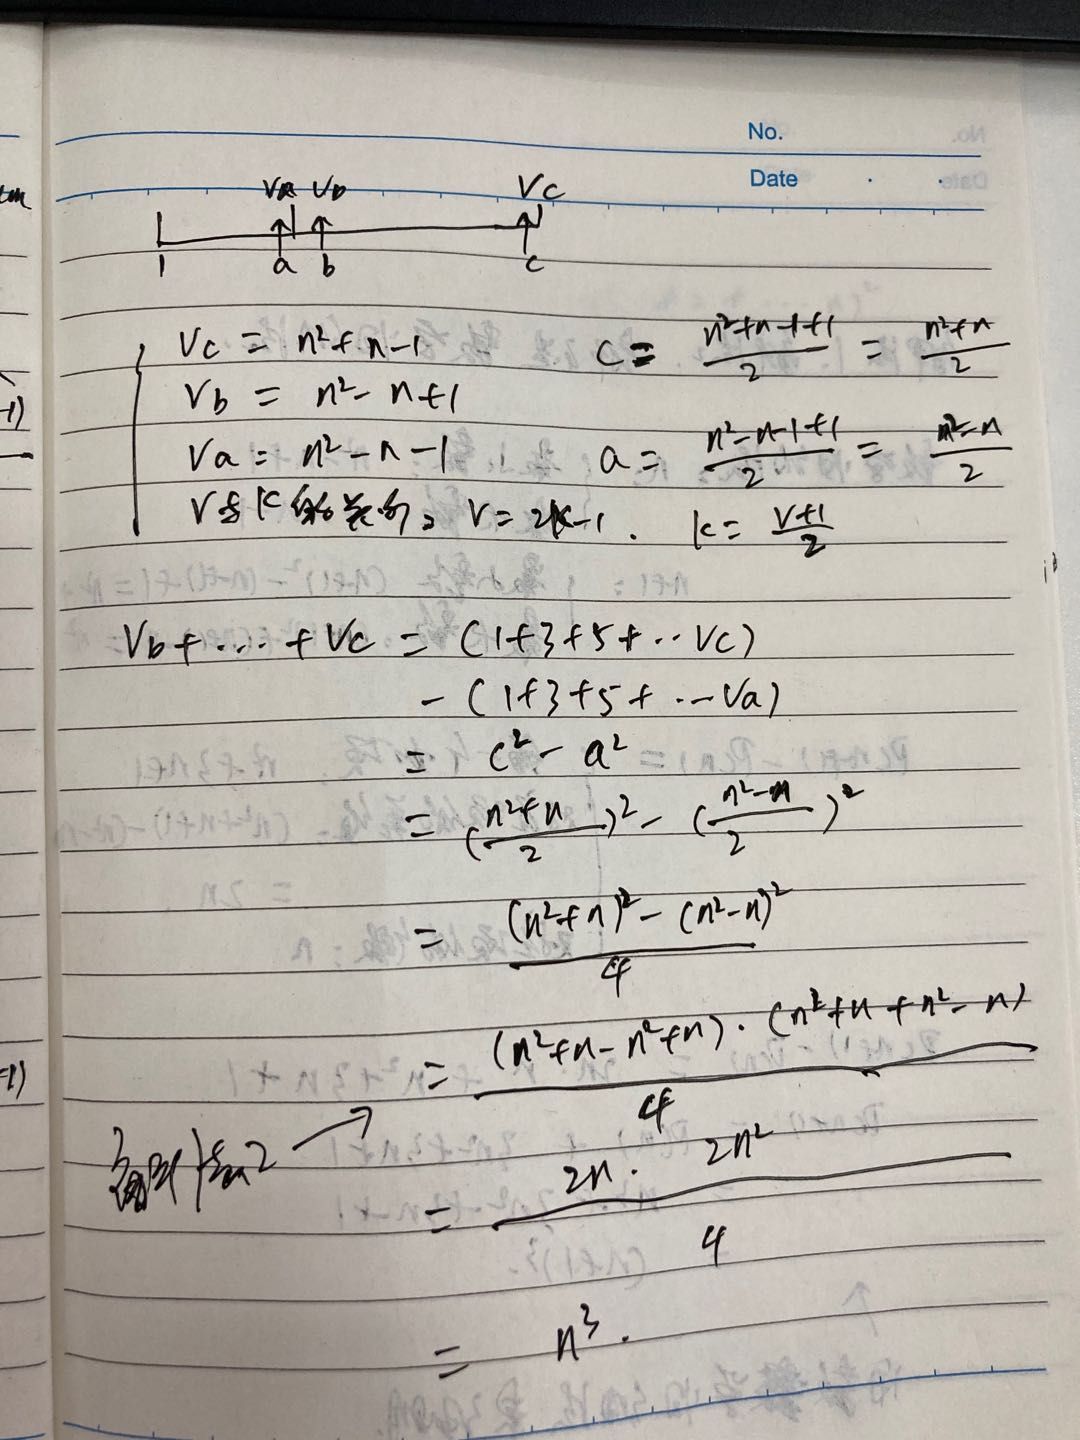 No.
Date
Va Vb Vc
1 a b c
Vc = n²+n-1 c = (n²+n-1+1)/2 = (n²+n)/2
Vb = n²-n+1
Va = n²-n-1 a = (n²-n-1+1)/2 = (n²-n)/2
V与K的关系 V=2K-1. K= (V+1)/2
Vb+...+Vc = (1+3+5+...Vc)
-(1+3+5+...Va)
= c²-a²
= ((n²+n)/2)²-((n²-n)/2)²
= ((n²+n)²-(n²-n)²)/4
= ((n²+n-n²+n)·(n²+n+n²-n))/4
= (2n·2n²)/4
= n³.